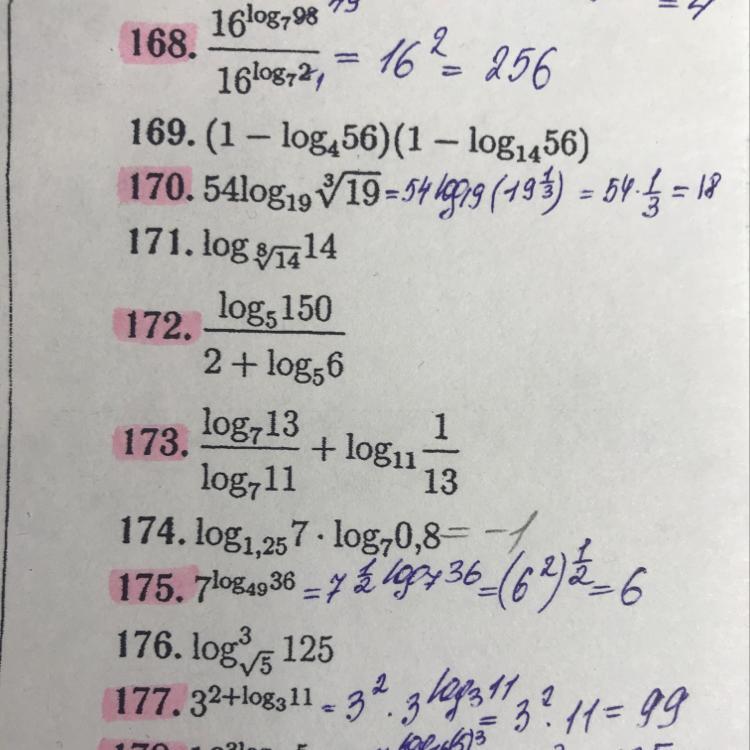 168. 16^{log₇98} / 16^{log₇2} = 16² = 256
169. (1 − log₄56)(1 − log₁₄56)
170. 54log₁₉ ∛19 = 54 log19 (19^{1/3}) = 54 · 1/3 = 18
171. log_{⁸√14} 14
172. log₅150 / (2 + log₅6)
173. log₇13 / log₇11 + log₁₁ 1/13
174. log_{1,25} 7 · log₇ 0,8 = −1
175. 7^{log₄₉36} = 7^{1/2 log₇ 36} = (6²)^{1/2} = 6
176. log³_{√5} 125
177. 3^{2+log₃11} = 3² · 3^{log₃11} = 3² · 11 = 99